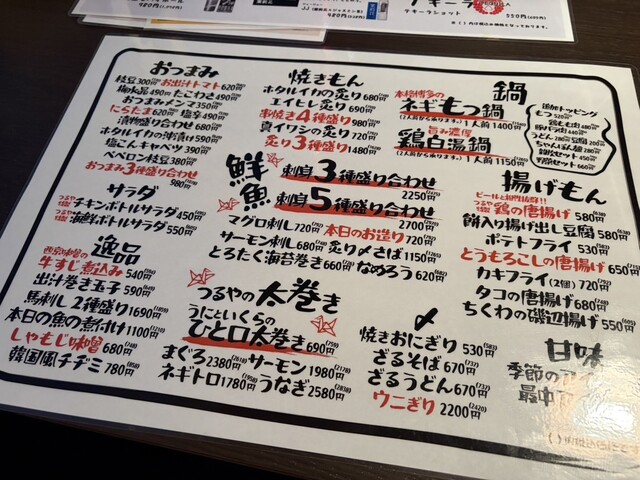 980円
550円
おつまみ
枝豆300円 お出汁トマト620円
梅水晶490円 たこわさ490円
おつまみメンマ350円
にらたま620円 塩辛490円
漬物盛り合わせ680円
ホタルイカの沖漬け590円
塩こんキャベツ390円
ペペロン枝豆380円
おつまみ3種盛り合わせ
980円
サラダ
つるや特製 チキンボトルサラダ450円
つるや特製 海鮮ボトルサラダ550円
逸品
西京味噌の
牛すじ煮込み540円
出汁巻き玉子590円
馬刺し2種盛り1690円
本日の魚の煮付け1100円
しゃもじ味噌680円(748)
韓国風チヂミ780円(858)
焼きもん
ホタルイカの炙り680円
エイヒレ炙り690円
串焼き4種盛り980円
真イワシの炙り780円
炙り3種盛り1480円
鮮魚
刺身3種盛り合わせ
2250円
刺身5種盛り合わせ
2700円
マグロ刺し720円 本日のお造り720円
サーモン刺し680円 炙り〆さば1150円
とろたく海苔巻き660円 なめろう620円(682)
つるやの太巻き
うにといくらの
ひと口太巻き690円(759)
まぐろ2380円(2618) サーモン1980円(2178)
ネギトロ1780円 うなぎ2580円(2838)
鍋
本格博多の
ネギもつ鍋
(2人前から承ります) 1人前1400円
旨み濃厚
鶏白湯鍋
(2人前から承ります) 1人前1150円
追加トッピング
もつ520円
鶏もも肉440円
うどん280円 豆腐200円
ちゃんぽん麺280円
雑炊セット450円
野菜セット660円
揚げもん
ビールと相性抜群!!
つるや特製 鶏の唐揚げ580円(638)
餅入り揚げ出し豆腐580円(638)
ポテトフライ530円(583)
とうもろこしの唐揚げ650円
カキフライ(2個)720円
タコの唐揚げ680円
ちくわの磯辺揚げ550円
〆
焼きおにぎり530円(583)
ざるそば670円(737)
ざるうどん670円(737)
ウニぎり2200円(2420)
甘味
季節の
最中